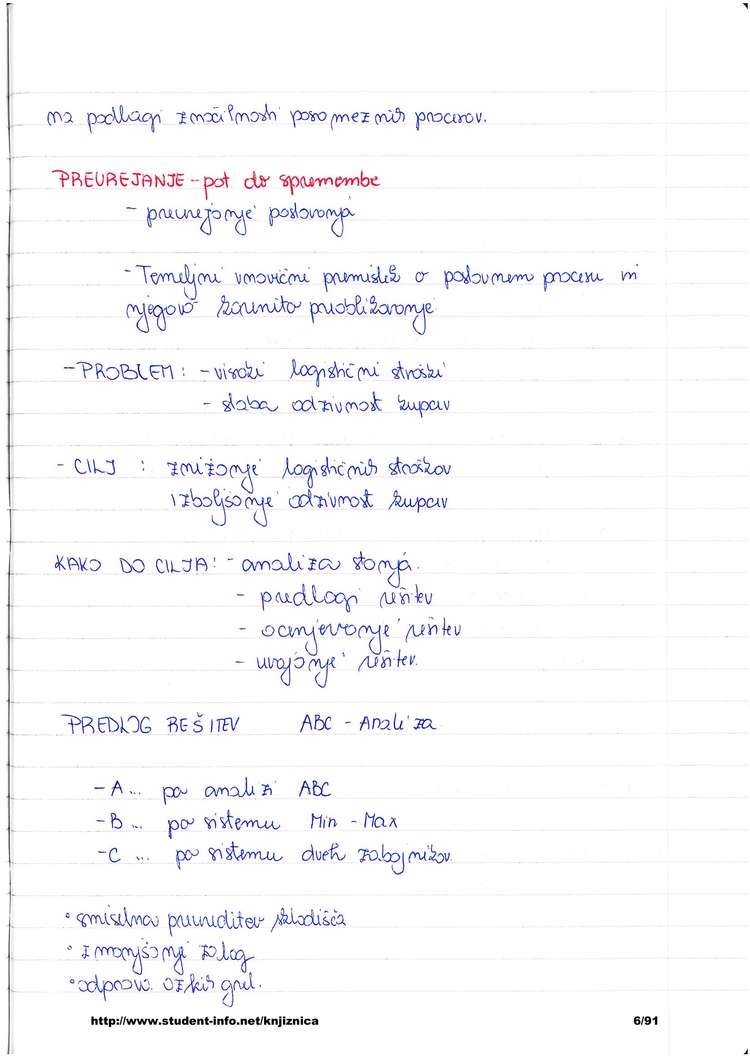 na podlagi značilnosti posameznih procesov.
PREUREJANJE - pot do spremembe
- preurejanje poslovanja
- Temeljni vnovični premislek o poslovnem procesu in
njegovo korenito preoblikovanje
- PROBLEM : - visoki logistični stroški
- slaba odzivnost kupcev
- CILJ : znižanje logističnih stroškov
izboljšanje odzivnost kupcev
KAKO DO CILJA: - analiza stanja.
- predlogi rešitev
- ocenjevanje rešitev
- uvajanje rešitev.
PREDLOG REŠITEV ABC - Analiza
- A... po analizi ABC
- B ... po sistemu Min - Max
- C ... po sistemu dveh zabojnikov.
• smiselna preureditev skladišča
• zmanjšanje zalog
• odprava ozkih grel.
http://www.student-info.net/knjiznica 6/91